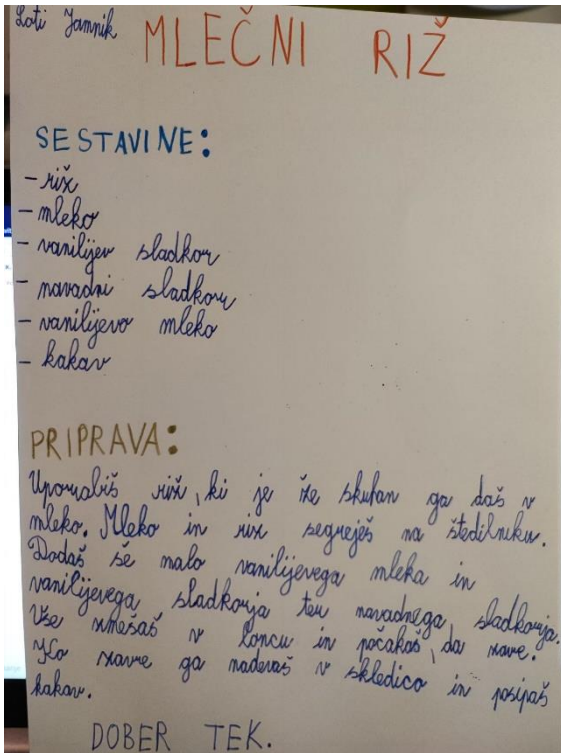 Loti Jamnik
MLEČNI RIŽ
SESTAVINE:
- riž
- mleko
- vanilijev sladkor
- navadni sladkor
- vanilijevo mleko
- kakav
PRIPRAVA:
Uporabiš riž, ki je že skuhan ga daš v
mleko. Mleko in riž segreješ na štedilniku.
Dodaš še malo vanilijevega mleka in
vanilijevega sladkorja ter navadnega sladkorja.
Vse zmešaš v loncu in počakaš, da zavre.
Ko zavre ga nadevaš v skledico in posipaš
kakav.
DOBER TEK.